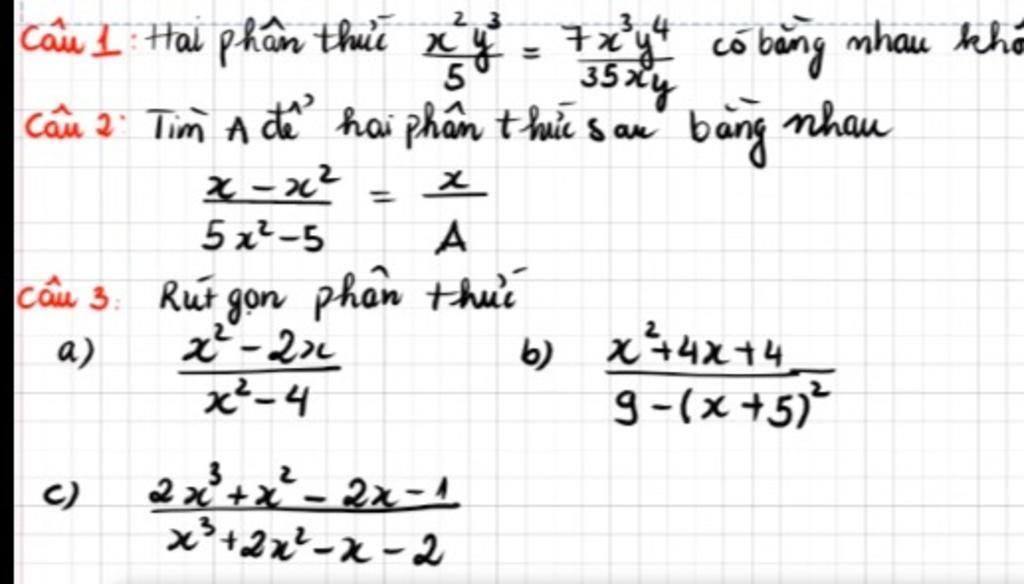 Câu 1: Hai phân thức x²y³/5 = 7x³y⁴/35xy có bằng nhau khô
Câu 2: Tìm A để hai phân thức sau bằng nhau
x - x²/5x² - 5 = x/A
Câu 3: Rút gọn phân thức
a) x² - 2x/x² - 4 b) x² + 4x + 4/9 - (x + 5)²
c) 2x³ + x² - 2x - 1/x³ + 2x² - x - 2